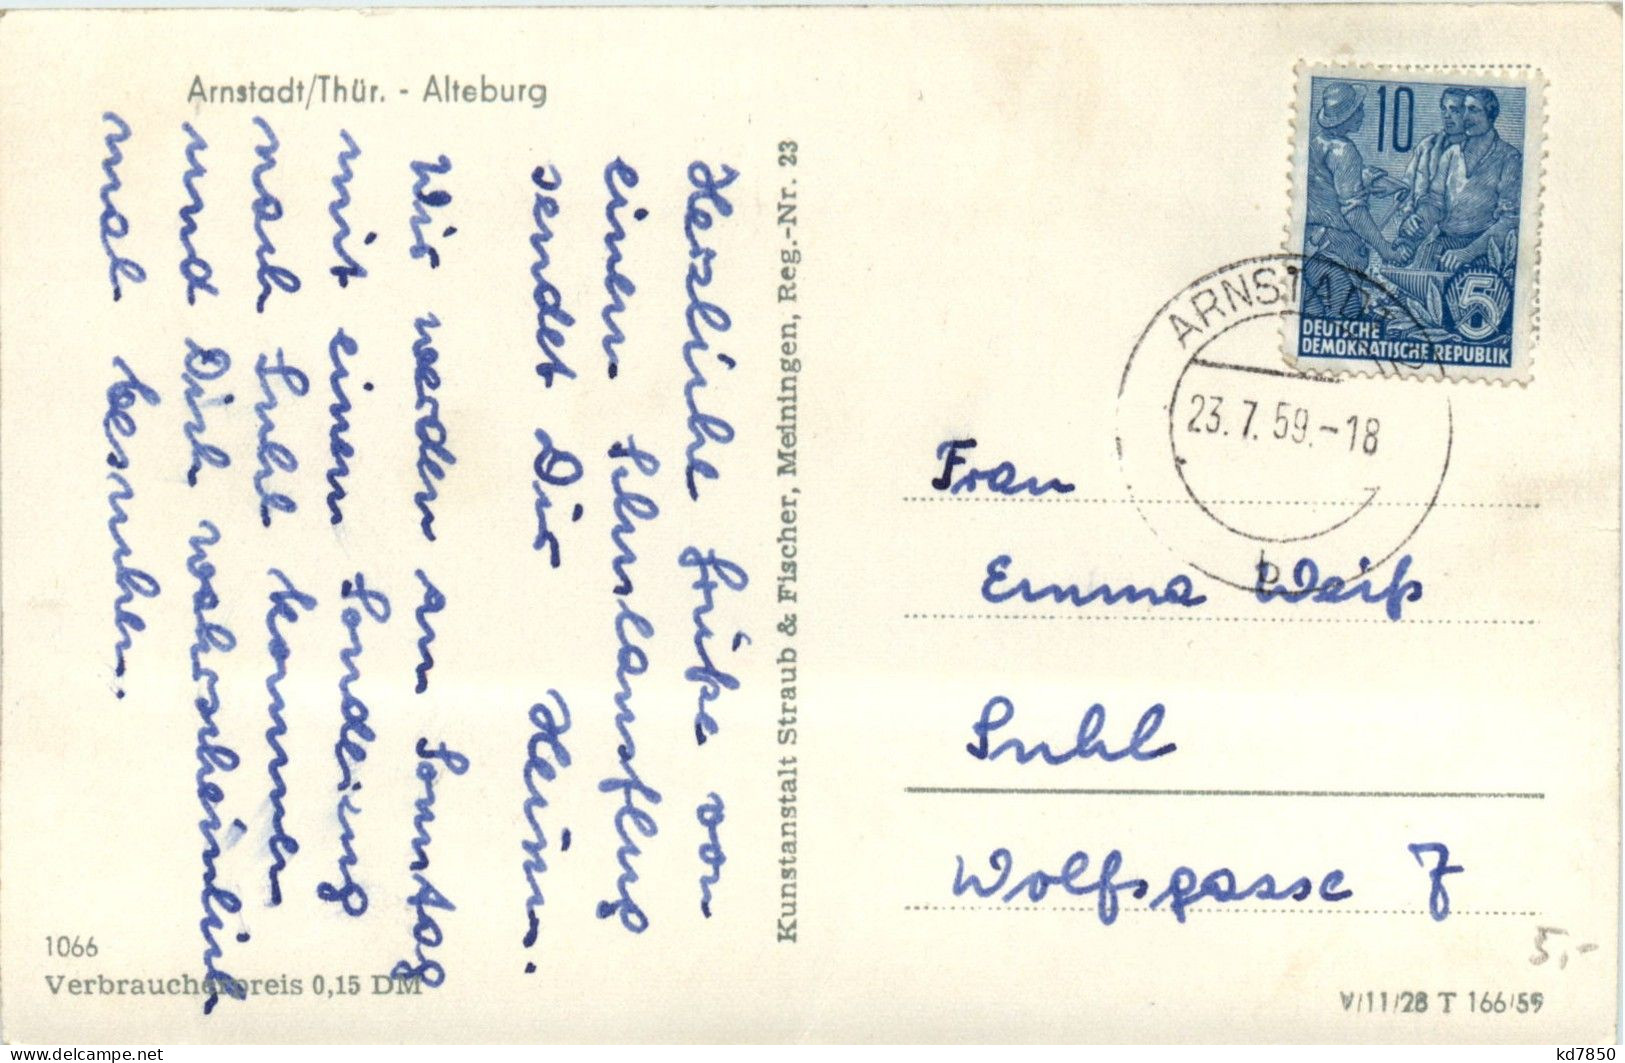 Arnstadt/Thür. - Alteburg
Herzliche Grüße von
einem Schulausflug
sendet Dir Heinz.
Wir werden am Sonntag
mit einem Sonderzug
nach Suhl kommen
und Dich wahrscheinlich
mal besuchen.
1066
Verbraucherpreis 0,15 DM
Kunstanstalt Straub & Fischer, Meiningen, Reg.-Nr. 23
10
5
DEUTSCHE
DEMOKRATISCHE REPUBLIK
ARNSTADT
23.7.59.-18
b
Frau
Emma Weiß
Suhl
Wolfsgasse 7
5,-
V/11/28 T 166/59
www.delcampe.net
kd7850